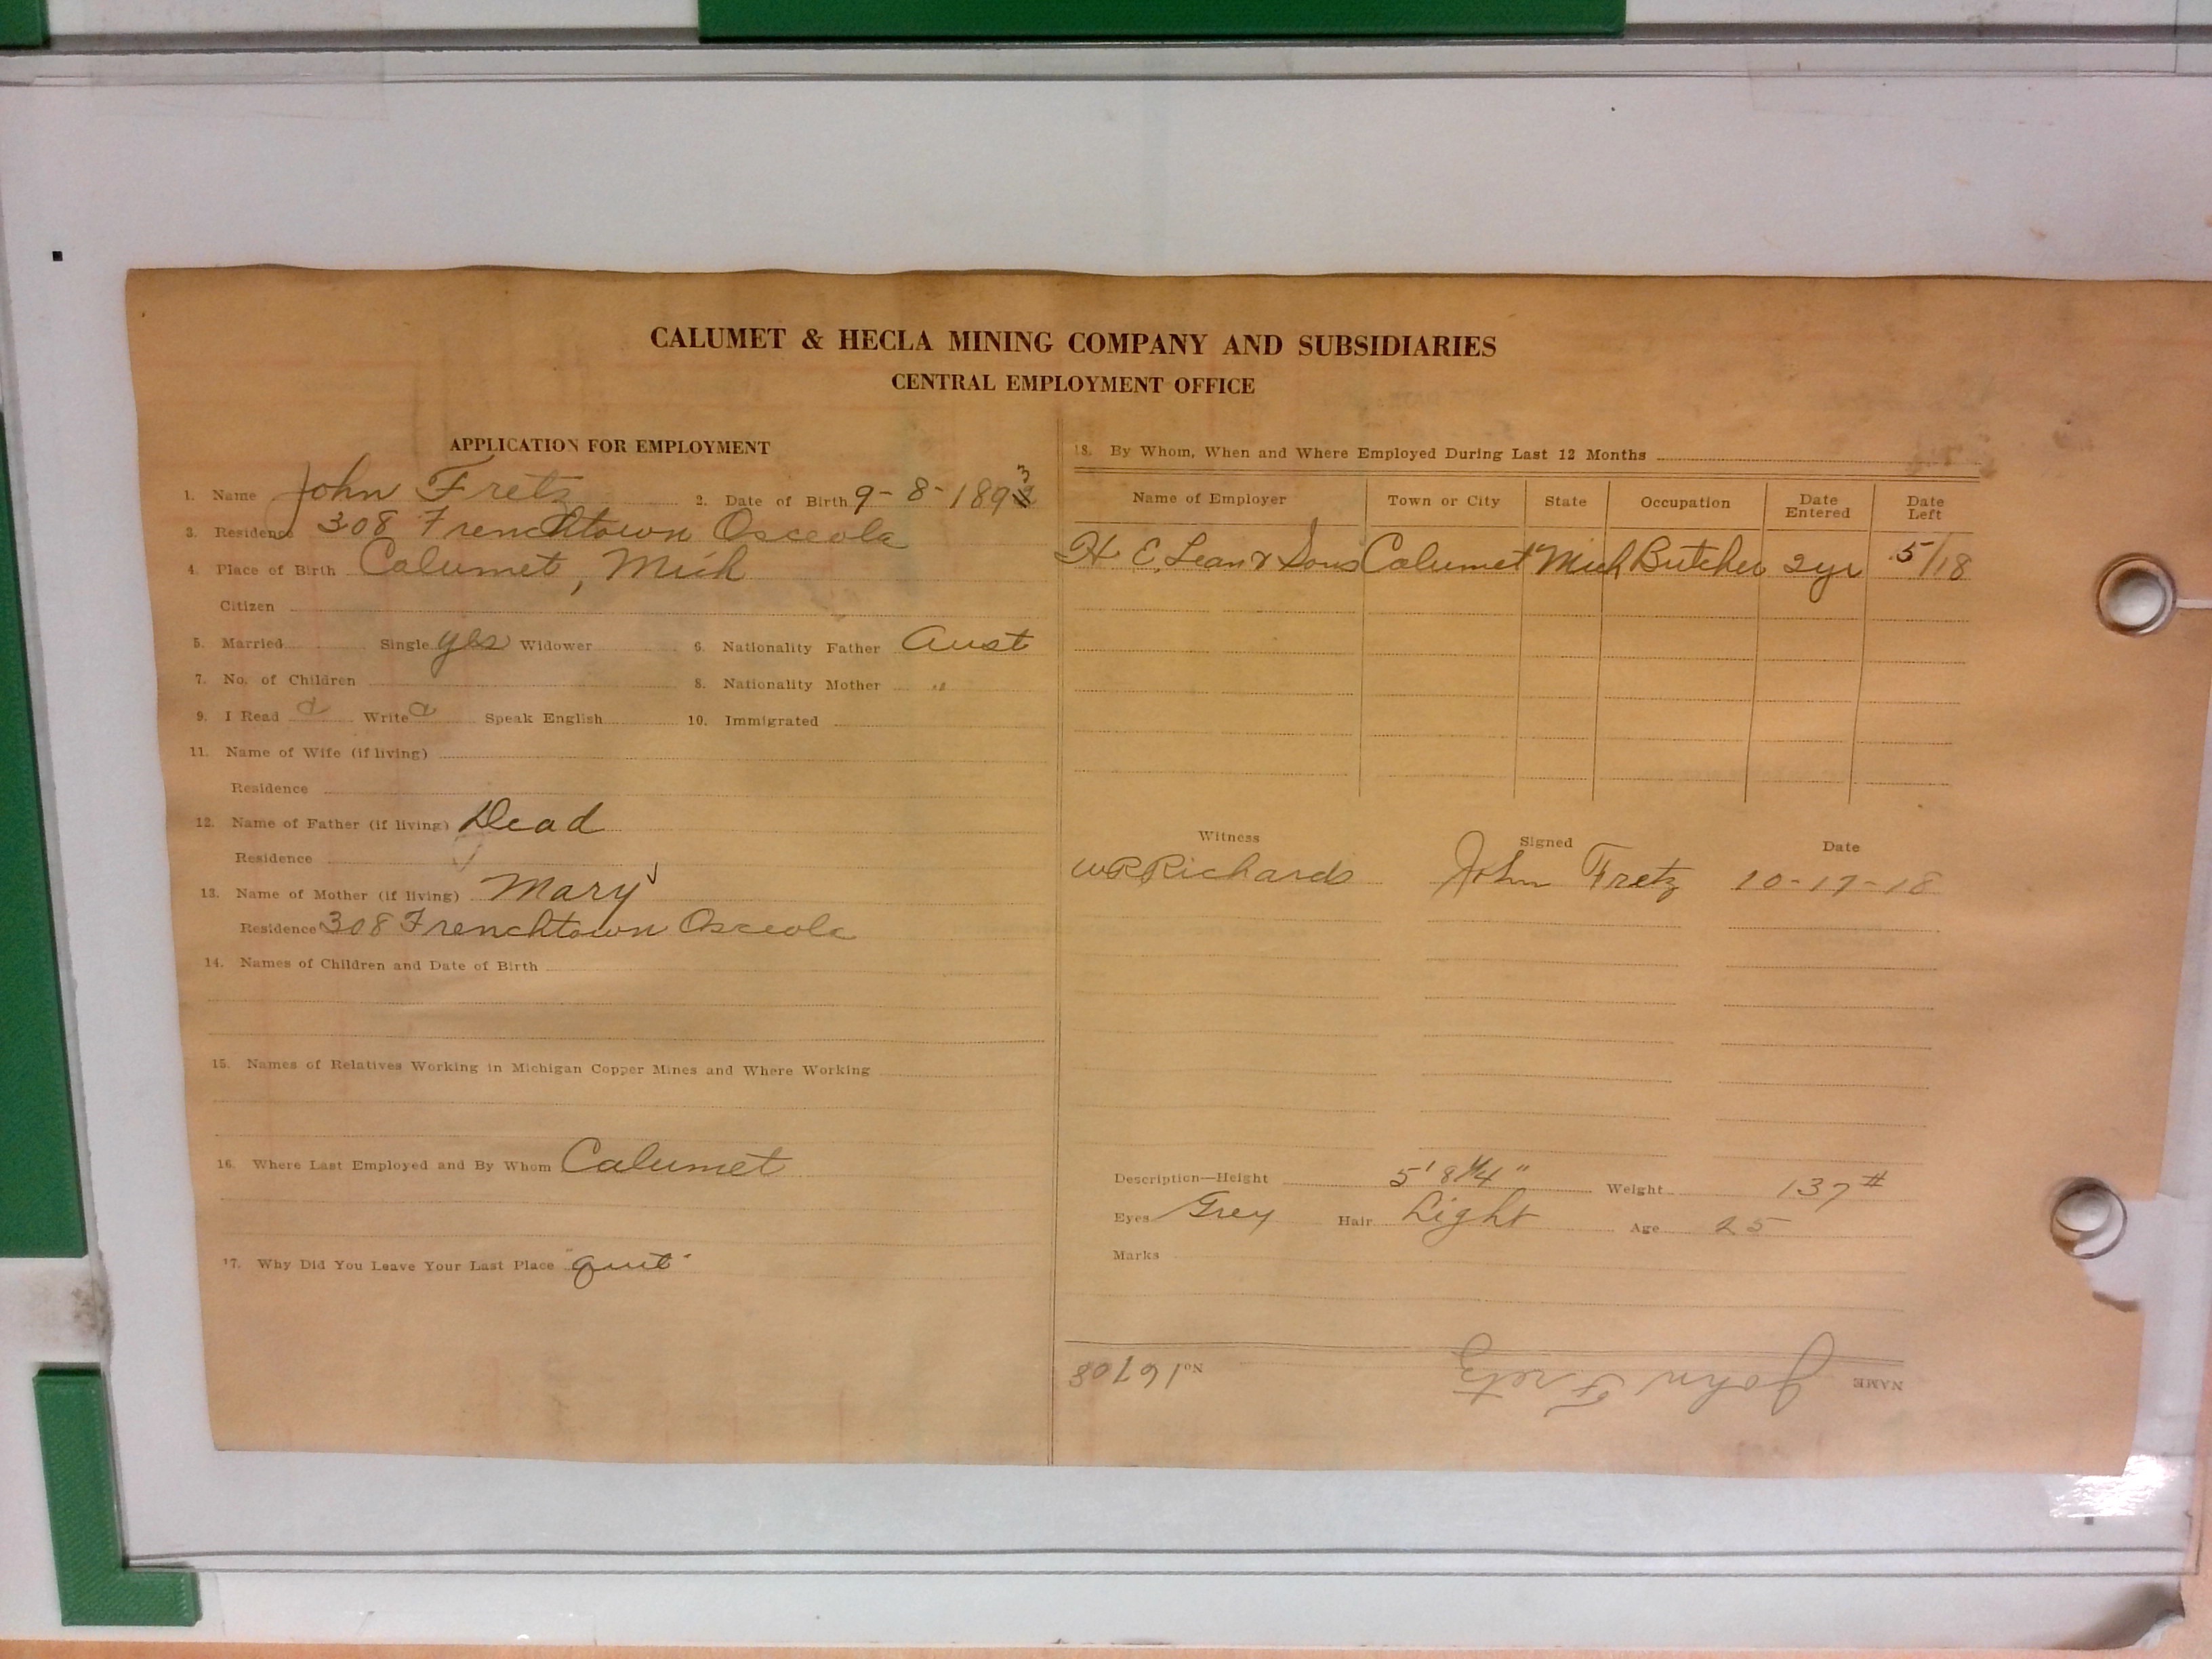 CALUMET & HECLA MINING COMPANY AND SUBSIDIARIES
CENTRAL EMPLOYMENT OFFICE
APPLICATION FOR EMPLOYMENT
1. Name John Fretz 2. Date of Birth 9-8-1893
3. Residence 308 Frenchtown Osceola
4. Place of Birth Calumet, Mich
Citizen
5. Married Single yes Widower 6. Nationality Father Aust
7. No. of Children 8. Nationality Mother "
9. I Read Write Speak English 10. Immigrated
11. Name of Wife (if living)
Residence
12. Name of Father (if living) Dead
Residence
13. Name of Mother (if living) Mary
Residence 308 Frenchtown Osceola
14. Names of Children and Date of Birth
15. Names of Relatives Working in Michigan Copper Mines and Where Working
16. Where Last Employed and By Whom Calumet
17. Why Did You Leave Your Last Place "quit"
18. By Whom, When and Where Employed During Last 12 Months
Name of Employer Town or City State Occupation Date Entered Date Left
H E. Lean & Sons Calumet Mich Butcher 2yr 5/18
Witness Signed Date
WR Richards John Fretz 10-17-18
Description—Height 5' 8 1/4" Weight 137 #
Eyes Grey Hair Light Age 25
Marks
NAME John Fretz No. 16708